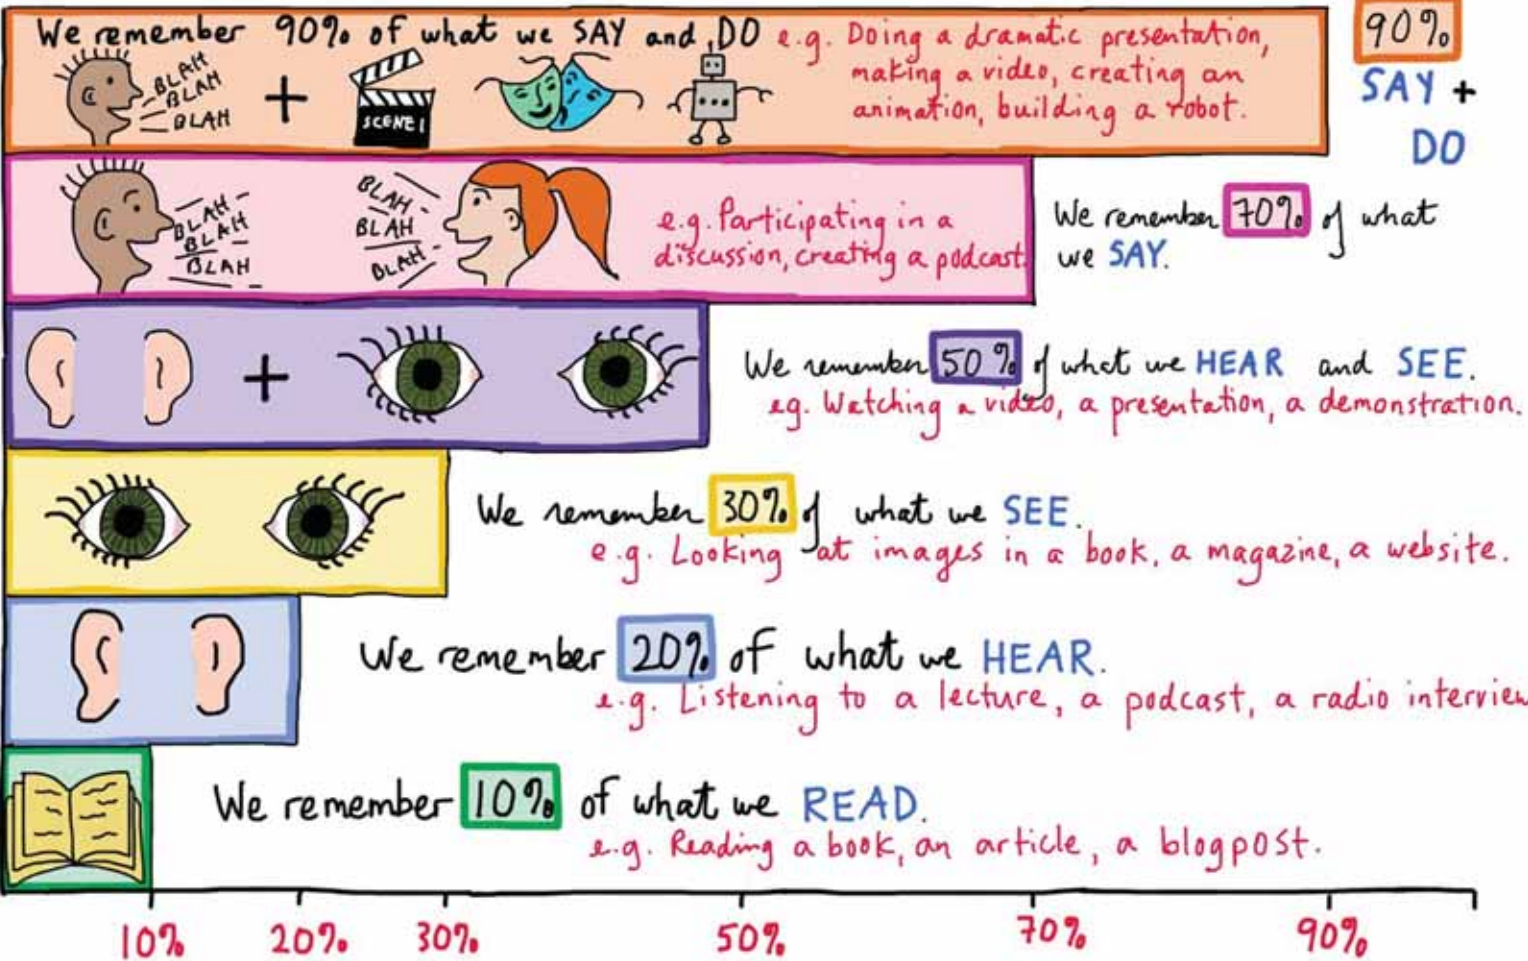 We remember 90% of what we SAY and DO e.g. Doing a dramatic presentation,
making a video, creating an
animation, building a robot.
BLAH
BLAH
BLAH
+
SCENE 1
90%
SAY +
DO
BLAH
BLAH
BLAH
BLAH
BLAH
BLAH
e.g. Participating in a
discussion, creating a podcast.
We remember 70% of what
we SAY.
+
We remember 50% of what we HEAR and SEE.
eg. Watching a video, a presentation, a demonstration.
We remember 30% of what we SEE.
e.g. Looking at images in a book, a magazine, a website.
We remember 20% of what we HEAR.
e.g. Listening to a lecture, a podcast, a radio interview
We remember 10% of what we READ.
e.g. Reading a book, an article, a blogpost.
10% 20% 30% 50% 70% 90%